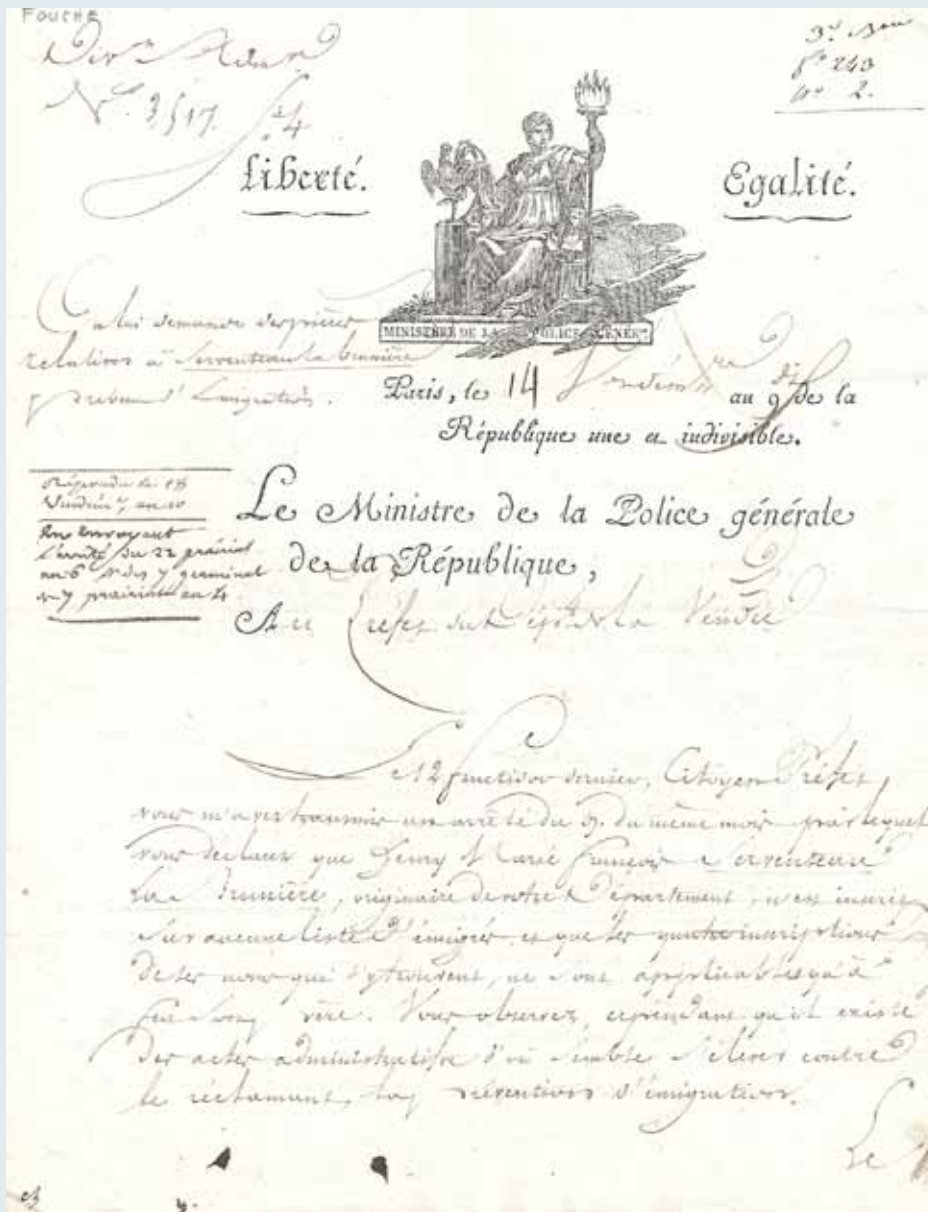 FOUCHÉ
N.º 3517.
54
3.e Bau
f.º 243
n.º 2.
Liberté.
Egalité.
MINISTERE DE LA POLICE GENER.le
demande
relatives à Serventeau la Brunière
prévenu d'émigration.
Paris, le 14 Vendémiaire an dix de la
République une et indivisible.
Répondu le
Vendém.re an 10
En envoyant
l'arrêté du 22 prairial
an 6 et des 7 germinal
et 7 prairial an 4.
Le Ministre de la Police générale
de la République,
Au Préfet du Dép.t de la Vendée
Le 12 fructidor dernier, Citoyen Préfet,
vous m'avez transmis un arrêté du 9 du même mois par lequel
vous déclarez que Henry Marie François Serventeau
La Brunière, originaire de votre Département, n'est inscrit
sur aucune liste d'émigrés, et que les quatre inscriptions
de ses noms qui s'y trouvent, ne sont applicables qu'à
feu son père. Vous observez, cependant qu'il existe
des actes administratifs d'où semble s'élever contre
le réclamant, la prévention d'émigration.
Le